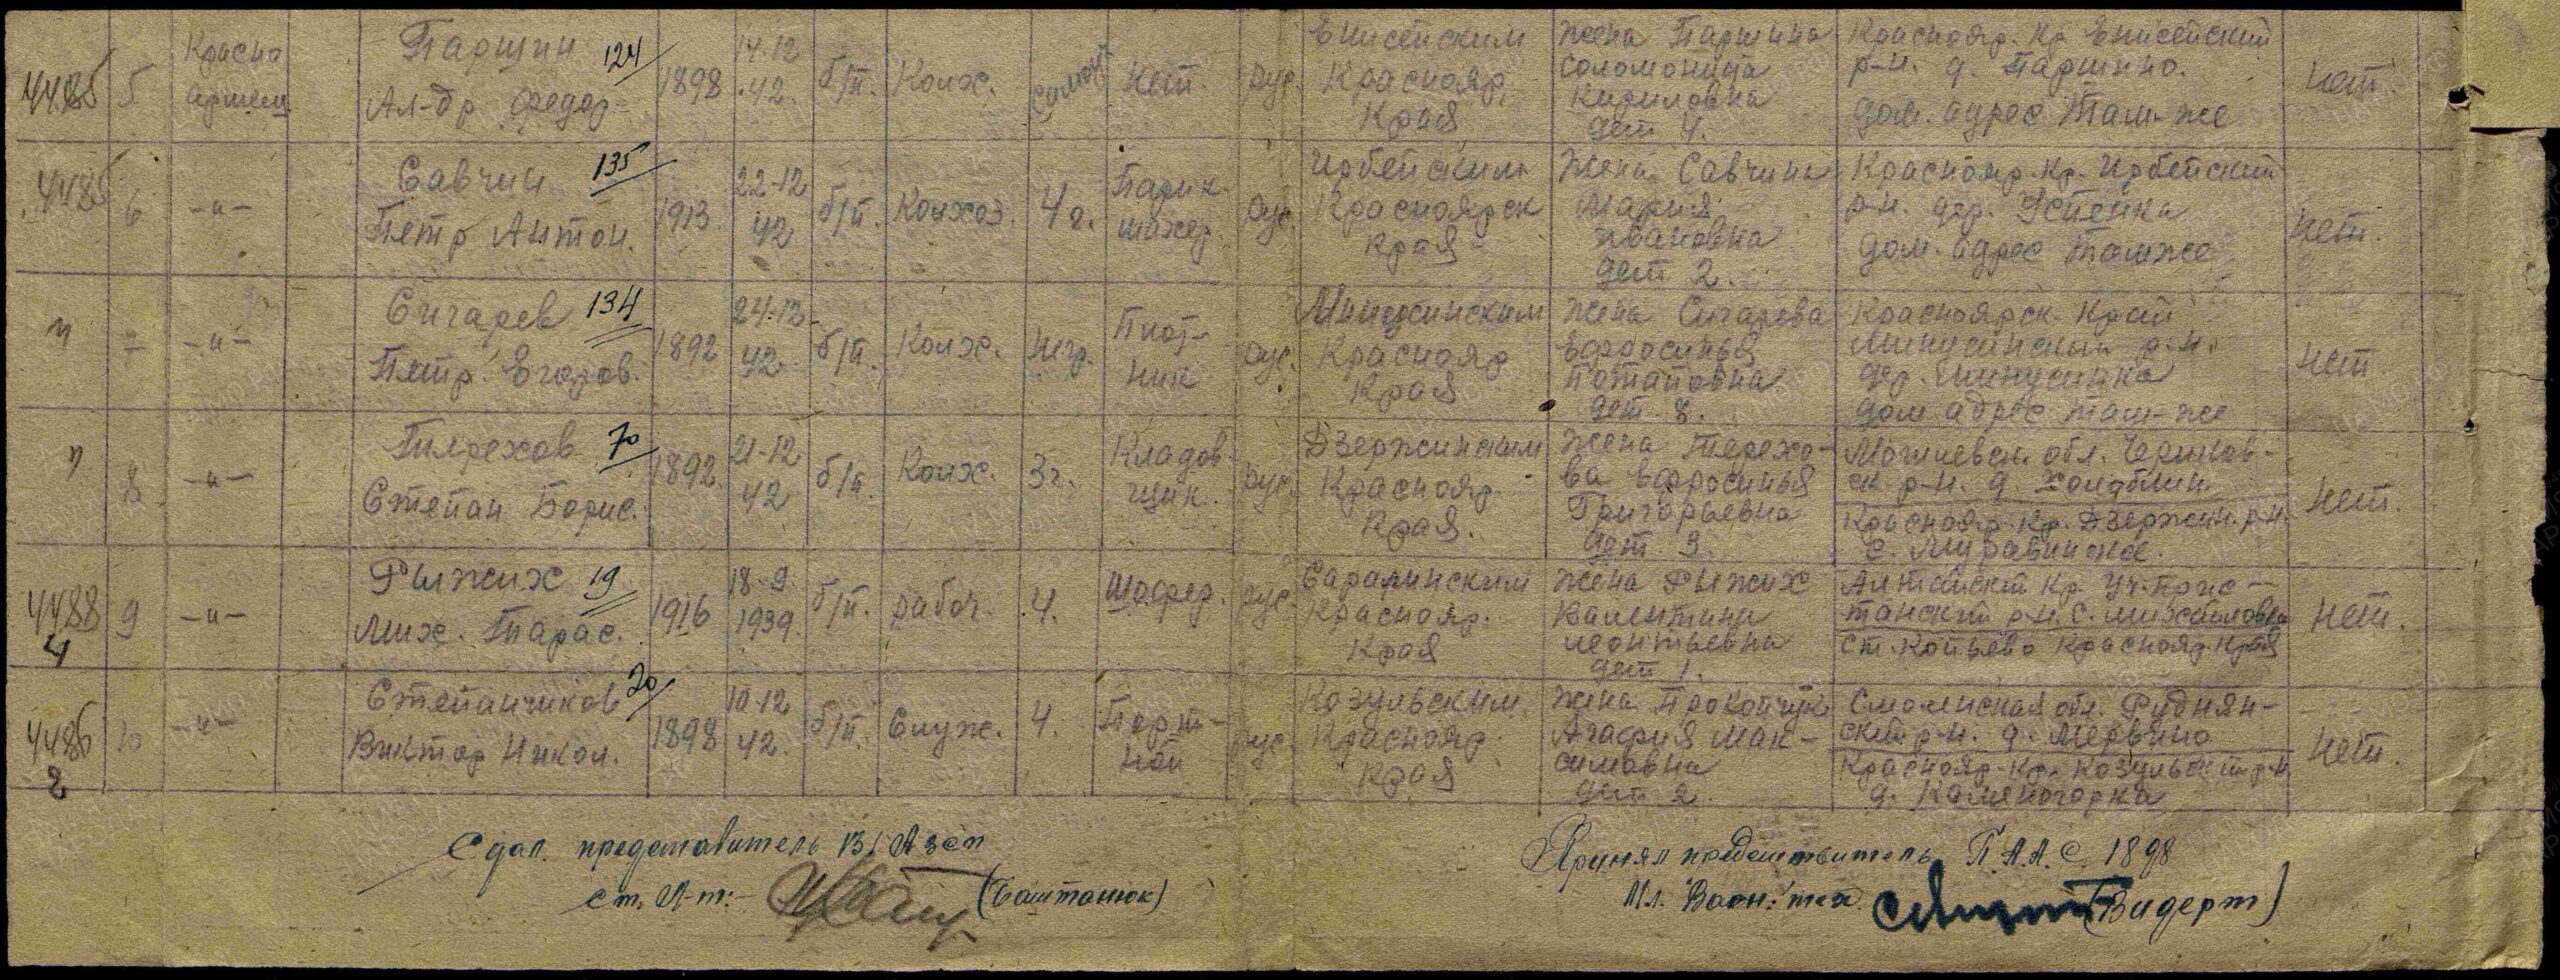 4485 5 Красно армеец Паршин 124 Ал-др Федор. 1898 14.12 .42. б/п. Колх. самоуч Нет. рус. Енисейским Краснояр. Края Жена Паршина Соломонида Кириловна дет 4. Краснояр. Кр Енисейский р-н. д. Паршино. дом. адрес Там-же нет.
4485 6 -"- Савчин 135 Петр Антон. 1913 22-12 42 б/п. Колхоз. 4 г. Парик махер. рус. Ирбейским Красноярск края Жена Савчина Мария Ивановна дет 2. Краснояр. Кр. Ирбейский р-н. дер. Успенка дом. адрес Там же нет.
" 7 -"- Сигарев 134 Петр. Егоров. 1892 24-12- 42 б/п. Колх. негр. Плот- ник рус. Минусинским Краснояр Края Жена Сигарева Ефросинья Потаповна дет 8. Красноярск Край Минусинский р-н. дер. Минусинка дом адрес там-же нет
" 8 -"- Терехов 70 Степан Борис. 1892. 21-12 42 б/п. Колх. 3 г. Кладов- щик. рус. Дзержинским Краснояр. Края. Жена Терехо- ва Ефросинья Григорьевна дет 3. Могилевск. обл. Чериков- ск. р-н. д. Краснояр. Кр. Дзержин. р-н. с. нет.
4488 4 9 -"- Рыжих 19 Мих. Тарас. 1916 18-9 1939. б/п. рабоч. 4. Шофер. рус. Саралинским Краснояр. Края Жена Рыжих Валентина Леонтьевна дет 1. Алтайский Кр Уч-Прис- танский р-н. с. Михайловка ст. Копьево Краснояр. Края нет.
4485 2 10 -"- Степанчиков 20 Виктор Никол. 1898 10-12 42. б/п. Служ. 4. Порт- ной рус. Козульским Краснояр. Края Жена Прокопчук Агафия Мак- симовна дет 2. Смоленская обл. Руднян- ский р-н. д. Краснояр-Кр. Козульский р-н д. Каменогорка нет.
Сдал. представитель
ст. Л-т:- (Баштанюк)
Принял представитель П.А.А.С. 1898
Мл. Воен. тех. (Видерт)